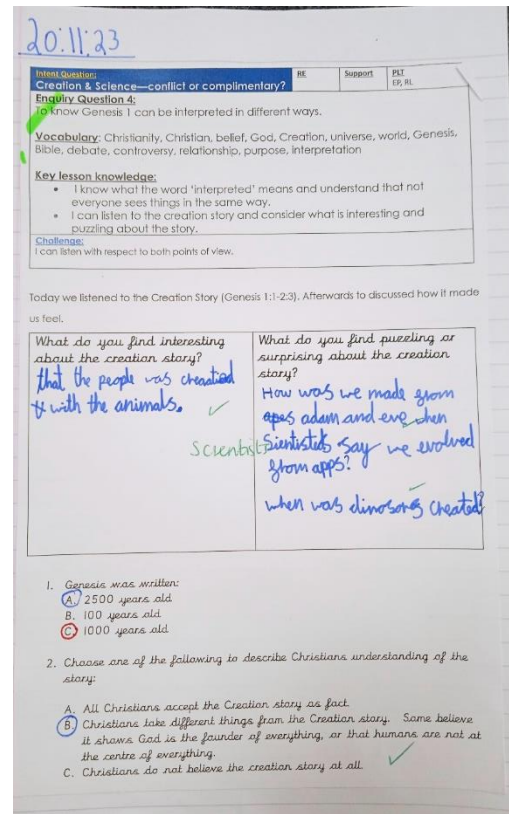 20.11.23
Intent Question:
Creation & Science—conflict or complimentary?
RE
Support
PLT
EP, RL
Enquiry Question 4:
To know Genesis 1 can be interpreted in different ways.
Vocabulary: Christianity, Christian, belief, God, Creation, universe, world, Genesis,
Bible, debate, controversy, relationship, purpose, interpretation
Key lesson knowledge:
• I know what the word 'interpreted' means and understand that not
everyone sees things in the same way.
• I can listen to the creation story and consider what is interesting and
puzzling about the story.
Challenge:
I can listen with respect to both points of view.
Today we listened to the Creation Story (Genesis 1:1-2:3). Afterwards to discussed how it made
us feel.
What do you find interesting
about the creation story?
that the people was
with the animals.
What do you find puzzling or
surprising about the creation
story?
How was we made from
apes adam and eve when
Scientist
Sientists say we evolved
from apps?
when was dinosors created?
1. Genesis was written:
A. 2500 years old
B. 100 years old
C. 1000 years old
2. Choose one of the following to describe Christians understanding of the
story:
A. All Christians accept the Creation story as fact
B. Christians take different things from the Creation story. Some believe
it shows God is the founder of everything, or that humans are not at
the centre of everything.
C. Christians do not believe the creation story at all